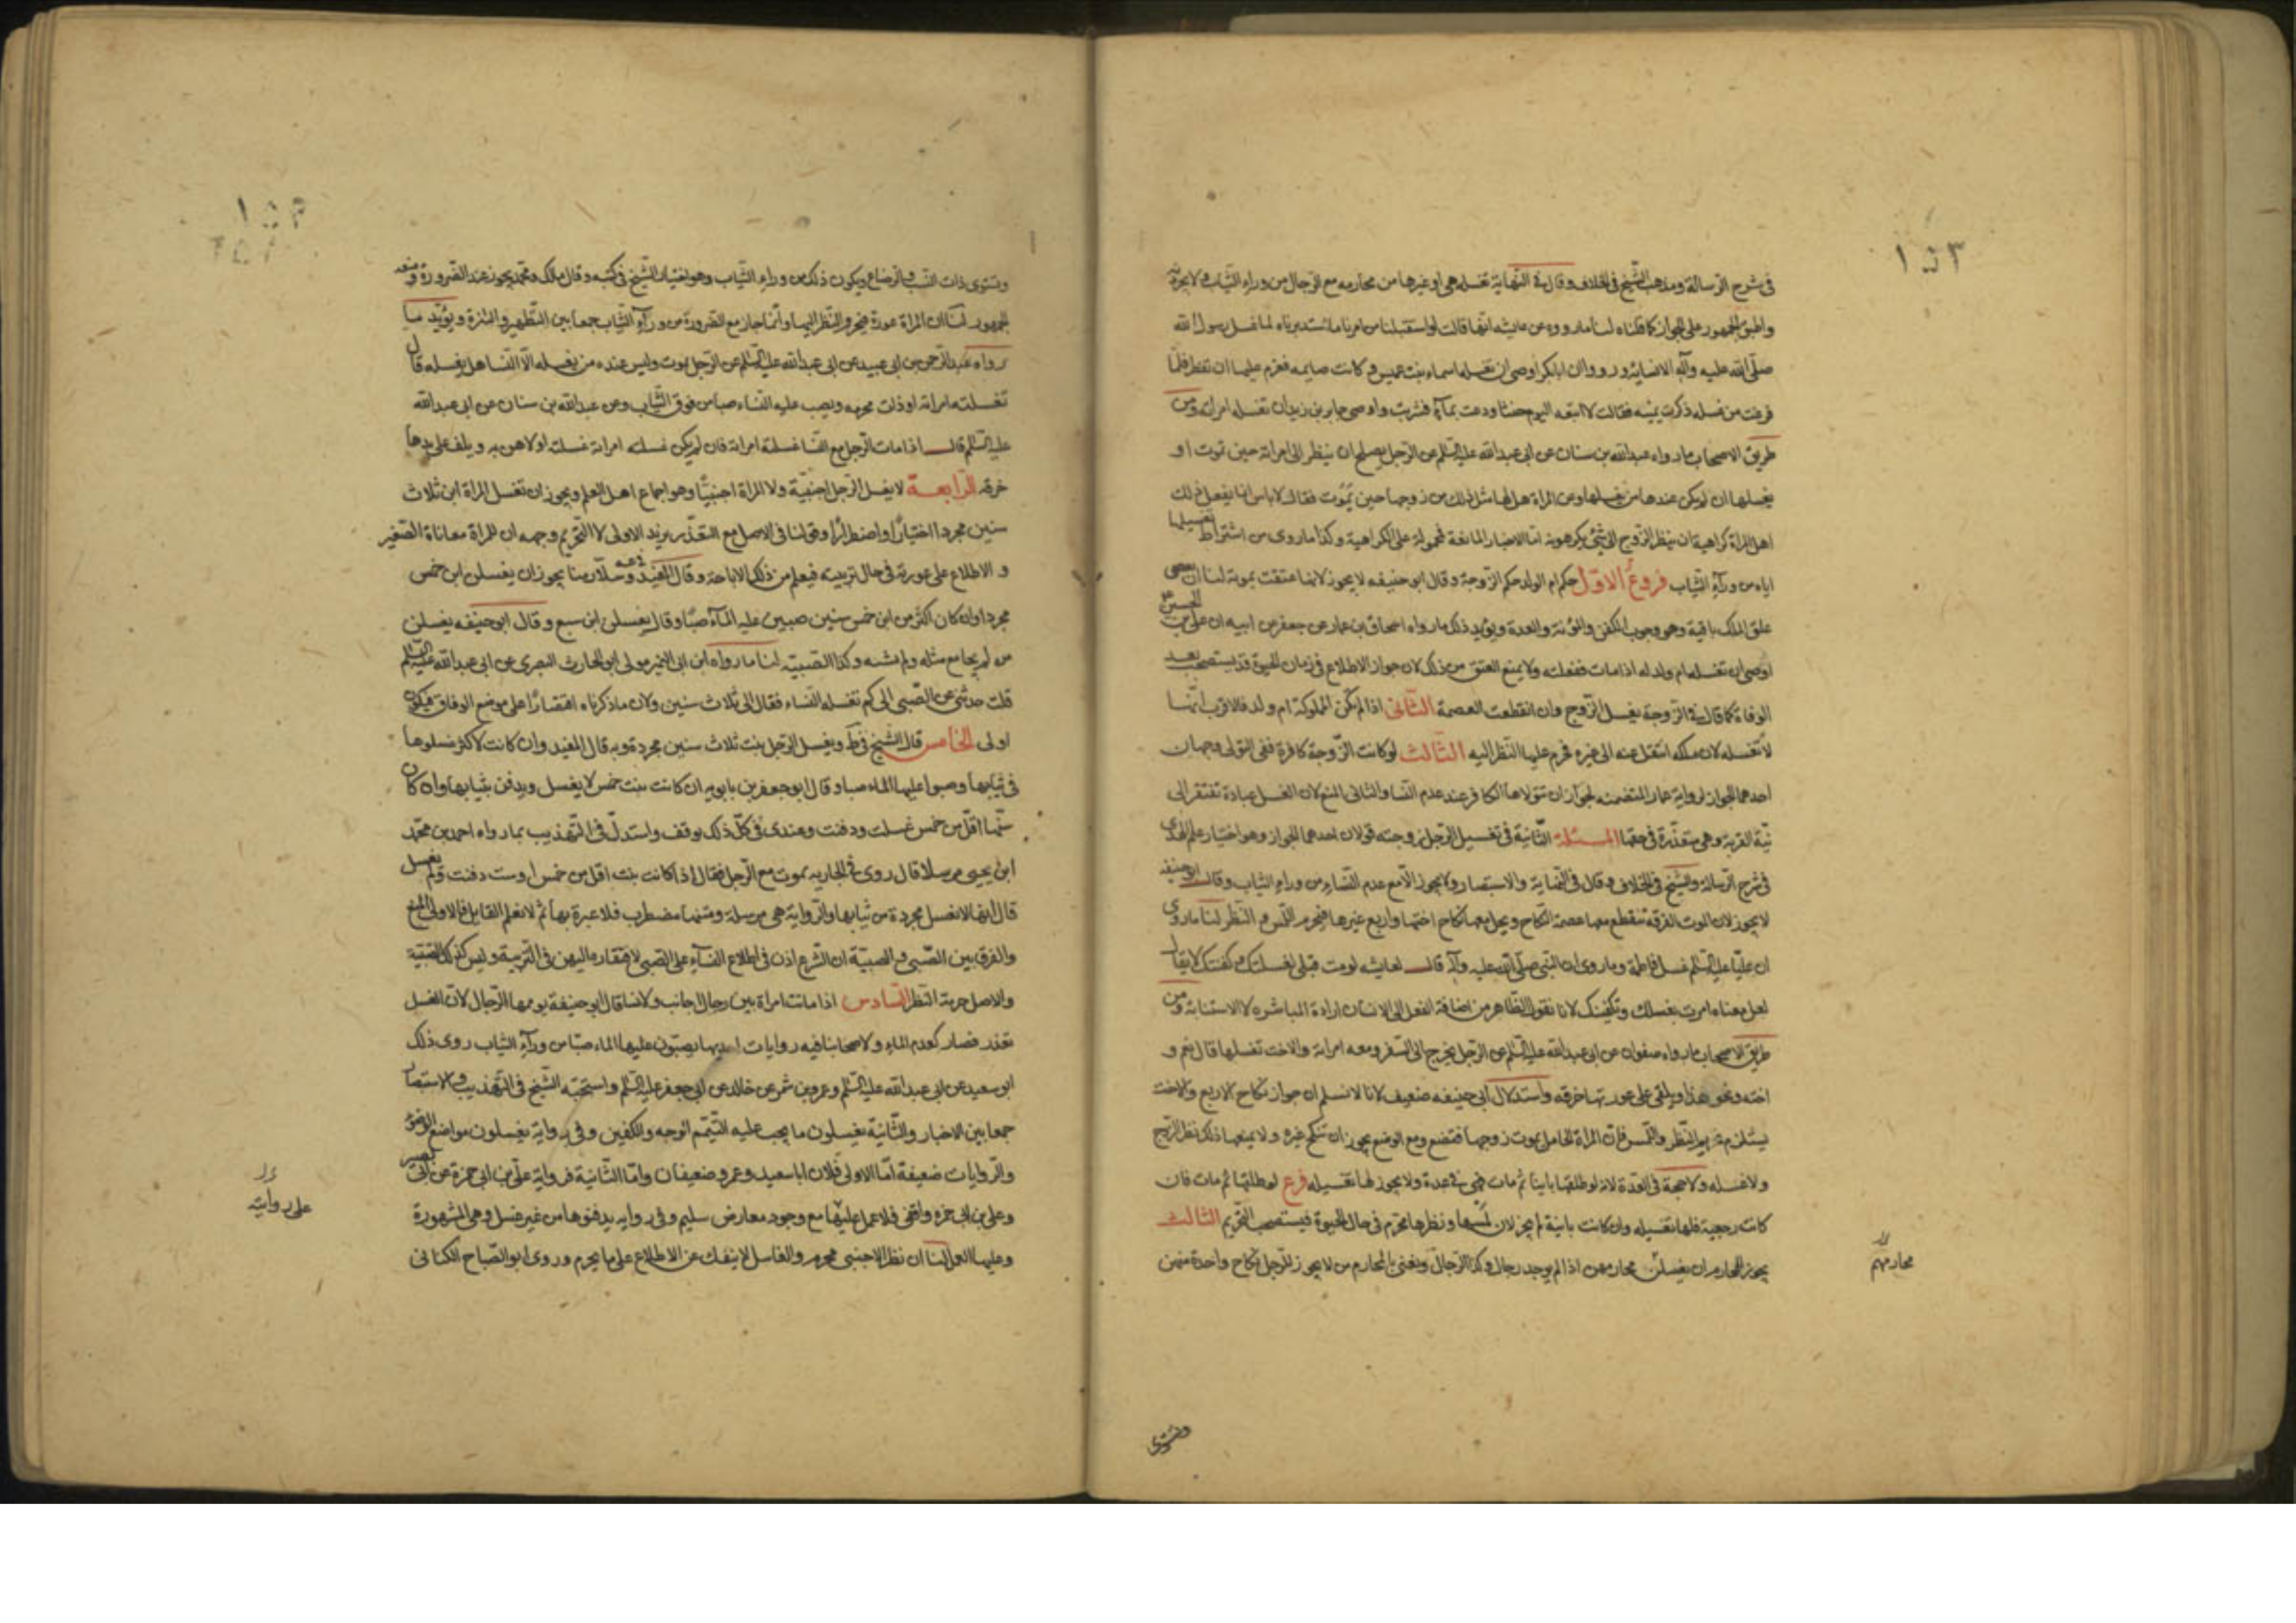 ١٥٣
في شرح الرسالة ومذهب الشيخ في الخلاف وقال في النهاية تغسله هي او غيرها من محارمه مع الرجال من وراء الثياب ولا يجردنه
واطبق الجمهور على الجواز كما قلناه لنا ما رووه عن عايشه انها قالت لو استقبلنا من امرنا ما استدبرناه لما غسل رسول الله
صلى الله عليه وآله الا نساؤه ورووا ان ابابكر اوصى ان تغسله اسماء بنت عميس وكانت صايمه فعزم عليها ان تفطر فلما
فرغت من غسله ذكرت يمينه فقالت لا اتبعه اليوم حنثا ودعت بمآء فشربت واوصى جابر بن زيد ان تغسله امراته ومن
طريق الاصحاب ما رواه عبدالله بن سنان عن ابى عبدالله عليه السلم عن الرجل يصلح ان ينظر الى امراته حين تموت او
يغسلها ان لم يكن عندها من يغسلها وعن المراة هل لها مثل ذلك من زوجها حين يموت فقال لا باس انما يفعل ذلك
اهل المراة كراهية ان ينظر الزوج الى شئ يكرهونه اما الاخبار المانعة فمحمولة على الكراهية وكذا ما روى من اشتراط تغسيلها
اياه من ورآء الثياب فروع الاول حكم ام الولد حكم الزوجة وقال ابو حنيفه لا يجوز لانها عتقت بموته لنا ان بعض
علق الملك باقية وهو وجوب الكفن والمؤنة والعدة ويؤيد ذلك ما رواه اسحاق بن عمار عن جعفر عن ابيه ان على بن الحسين ع
اوصى ان تغسله ام ولد له اذا مات فغسلته ولا يمنع العتق من ذلك لان جواز الاطلاع في زمان الحيوة قد يستصحب بعد
الوفاة كما قال في الزوجة يغسل الزوج وان انقطعت العصمة الثاني اذا لم تكن المملوكة ام ولد فالاقرب انها
لا تغسله لان ملكه انتقل عنه الى غيره فحرم عليها النظر اليه الثالث لو كانت الزوجة كافرة ففى التولى وجهان
احدهما الجواز لرواية عمار المتضمنه لجواز ان تتولاها الكافر عند عدم النسا والثاني المنع لان الغسل عبادة تفتقر الى
نية القربة وهى متعذرة في حقها المسئلة الثانية في تغسيل الرجل زوجته قولان احدهما الجواز وهو اختيار علم الهدى
في شرح الرسالة والشيخ في الخلاف وقال في النهاية والاستبصار ولا يجوز الا مع عدم النساء من وراء الثياب وقال ابو حنيفه
لا يجوز لان الموت الفرقة تنقطع معها عصمة النكاح ويحل معها نكاح اختها واربع غيرها فيحرم اللمس والنظر لنا ما روى
ان عليا عليه السلم غسل فاطمة وما روى ان النبي صلى الله عليه وآله قال لعايشه لو مت قبلى لغسلتك وكفنتك لا يقال
لعل معناه امرت بغسلك وتكفينك لانا نقول الظاهر من اضافة الفعل الى الانسان ارادة المباشره لا الاستنابة ومن
طريق الاصحاب ما رواه صفوان عن ابى عبدالله عليه السلم عن الرجل يخرج الى السفر ومعه امراته والاخت تغسلها قال نعم و
اخته ونحو هذا ويلقى على عورتها خرقه واستدلال ابى حنيفه ضعيف لانا لا نسلم ان جواز نكاح الاربع والاخت
يستلزم تحريم النظر واللمس فان المراة الحامل يموت زوجها فتضع ومع الوضع يجوز ان تنكح غيره ولا يمنعها ذلك نظر الزوج
ولا غسله ولا حجة في العدة لانه لو طلقها باينا ثم مات فهى في عدة ولا يجوز لها تغسيله فرع لو طلقها ثم مات فان
كانت رجعية فلها تغسيله وان كانت باينة لم يجز لان لمسها ونظرها محرم في حال الحيوة فيستصحب التحريم الثالث
يجوز للمحارم ان يغسلن محارمهن اذا لم يوجد رجال وكذا الرجال ونعنى بالمحارم من لا يجوز للرجل نكاح واحدة منهن
محارمهم
وتستوى
وتستوى ذات النسب والرضاع ويكون ذلك من وراء الثياب وهو اختيار الشيخ في كتبه وقال مالك ومحمد يجوز عند الضرورة ومنعه
الجمهور لنا ان المراة عورة فيحرم النظر اليها وانما جاز مع الضرورة من ورآء الثياب جمعا بين التطهير والستر ويؤيد ما
رواه عبدالرحمن بن ابى عبد عن ابى عبدالله عليه السلم عن الرجل يموت وليس عنده من يغسله الا النسا هل يغسله قال
تغسله امراته او ذات محرمه ويصب عليه النساء صبا من فوق الثياب وعن عبدالله بن سنان عن ابى عبدالله
عليه السلم قال اذا مات الرجل مع النسا غسلته امراته فان لم يكن غسلته امراته غسلته اولاهن به ويلف على يدها
خرقه الرابعة لا يغسل الرجل اجنبية ولا المراة اجنبيا وهو اجماع اهل العلم ويجوز ان تغسل المراة ابن ثلاث
سنين مجردا اختيارا واضطرارا وقولنا في الاصل مع التعذر يريد الاولى لا التحريم وجهه ان للمراة معاناة الصغير
والاطلاع على عورته في حال تربيته فيعلم من ذلك الاباحة وقال المفيد وسلار منا يجوز ان يغسلن ابن خمس
مجردا وان كان اكثر من ابن خمس سنين صببن عليه المآء صبا وقال يغسلن ابن سبع وقال ابو حنيفه يغسلن
من لم يجامع مثله ولم يشته وكذا الصبية لنا ما رواه ابن ابى النمير مولى ابو الحارث البصرى عن ابى عبدالله عليه السلم
قلت حدثنى عن الصبى الى كم تغسله النساء فقال الى ثلاث سنين ولان ما ذكرناه اقتصارا على موضع الوفاق فيكون
اولى الخامس قال الشيخ في ط ويغسل الرجل بنت ثلاث سنين مجردة وبه قال المفيد وان كانت لاكثر غسلوها
في ثيابها وصبوا عليها الماء صبا وقال ابو جعفر بن بابويه ان كانت بنت خمس لا يغسل ويدفن بثيابها وان كان
سنها اقل من خمس غسلت ودفنت وعندى في كل ذلك توقف واستدل في التهذيب بما رواه احمد بن محمد
ابن يحيى مرسلا قال روى في الجاريه تموت مع الرجل فقال اذا كانت بنت اقل من خمس او ست دفنت ولم يغسل
قال انها لا تغسل مجردة من ثيابها والرواية هى مرسلة ومتنها مضطرب فلا عبرة بها ثم لا نعلم القايل فالاولى المنع
والفرق بين الصبى والصبية ان الشرع اذن في اطلاع النسآء على الصبى لافتقاره اليهن في التربية وليس كذلك الصبية
والاصل حرمة النظر السادس اذا ماتت امراة بين رجال اجانب ولا نسا قال ابو حنيفة يوممها الرجال لان الغسل
تعذر فصار كعدم الماء ولاصحابنا فيه روايات احديها يصبون عليها الماء صبا من ورآء الثياب روى ذلك
ابو سعيد عن ابى عبدالله عليه السلم وعمرو بن شمر عن خالد عن ابى جعفر عليه السلم واستحبه الشيخ في التهذيب والاستبصار
جمعا بين الاخبار والثانية يغسلون ما يجب عليه التيمم الوجه والكفين وفي رواية يغسلون مواضع الوضوء
والروايات ضعيفة اما الاولى فلان ابا سعيد وعمرو ضعيفان واما الثانية فرواية على بن ابى حمزة عن ابى بصير
وعلى بن ابى حمزه واقفى فلا عمل عليها مع وجود معارض سليم وفي روايه يدفنوها من غير غسل وهى المشهورة
وعليها العمل لنا ان نظر الاجنبى محرم والغاسل لا ينفك عن الاطلاع على ما يحرم وروى ابو الصباح الكنانى
على روايته